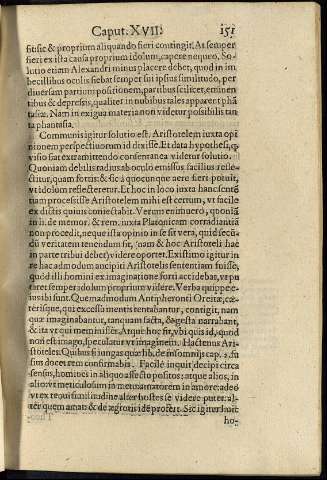 Caput. XVII. 151
sitisse & proprium aliquando fieri contingit. At semper
fieri ex ista causa proprium idolum, capere nequeo. So-
lutio etiam Alexandri minus placere debet, quod in im-
becillibus oculis fiebat semper sui ipsius similitudo, per
diuersam partium positionem, partibus scilicet, eminen
tibus & depressis, qualiter in nubibus tales apparent phā
tasiæ. Nam in exigua materia non videtur possibilis tan
ta phantasia.
Communis igitur solutio est. Aristotelem iuxta opi
nionem perspectiuorum id dixisse. Et data hypothesi, q
visio fiat extramittendo consentanea videtur solutio.
Quoniam debilis radius ab oculo emissus facilius refle-
ctitur, quam fortis: & sic à quocunque aere fieri potuit,
vt idolum reflecteretur. Et hoc in loco iuxta hanc sentē
tiam processisse Aristotelem mihi est certum, vt facile
ex dictis quiuis coniectabit. Verum enimuero, quoniā
in li. de memor. & rem. iuxta Platonicam corradiantiā
non procedit, neque ista opinio in se sit vera, quid secū
dū veritatem tenendum sit, (nam & hoc Aristoteli hac
in parte tribui debet) videre oportet. Existimo igitur in
re hac admodum ancipiti Aristotelis sententiam fuisse,
quòd illi homini ex imaginatione forti accidebat, vt pu
taret semper idolum proprium videre. Verba quippe e-
iusibi sunt. Quemadmodum Antipheronti Oreitæ, cæ-
terisque, qui excessa mentis tentabantur, contigit, nam
quæ imaginabantur, tanquam facta, & gesta narrabant,
& ita vt qui meminisset. Atque hoc fit, vbi quis id, quod
non est imago, speculatur vt imaginem. Hactenus Ari-
stoteles. Quibus si iungas quæ lib. de insomnijs cap. 2. fu
sius docet rem confirmabis. Facile inquit decipi circa
sensus, homines in aliquo affectu positos: atque alios, in
alio: vt meticulosum in metu: amatorem in amore: adeò
vt ex tenui similitudine alter hostes se videre putet: al-
ter quem amat: & de ægrotis idē profert. Sic igitur huic
ho-